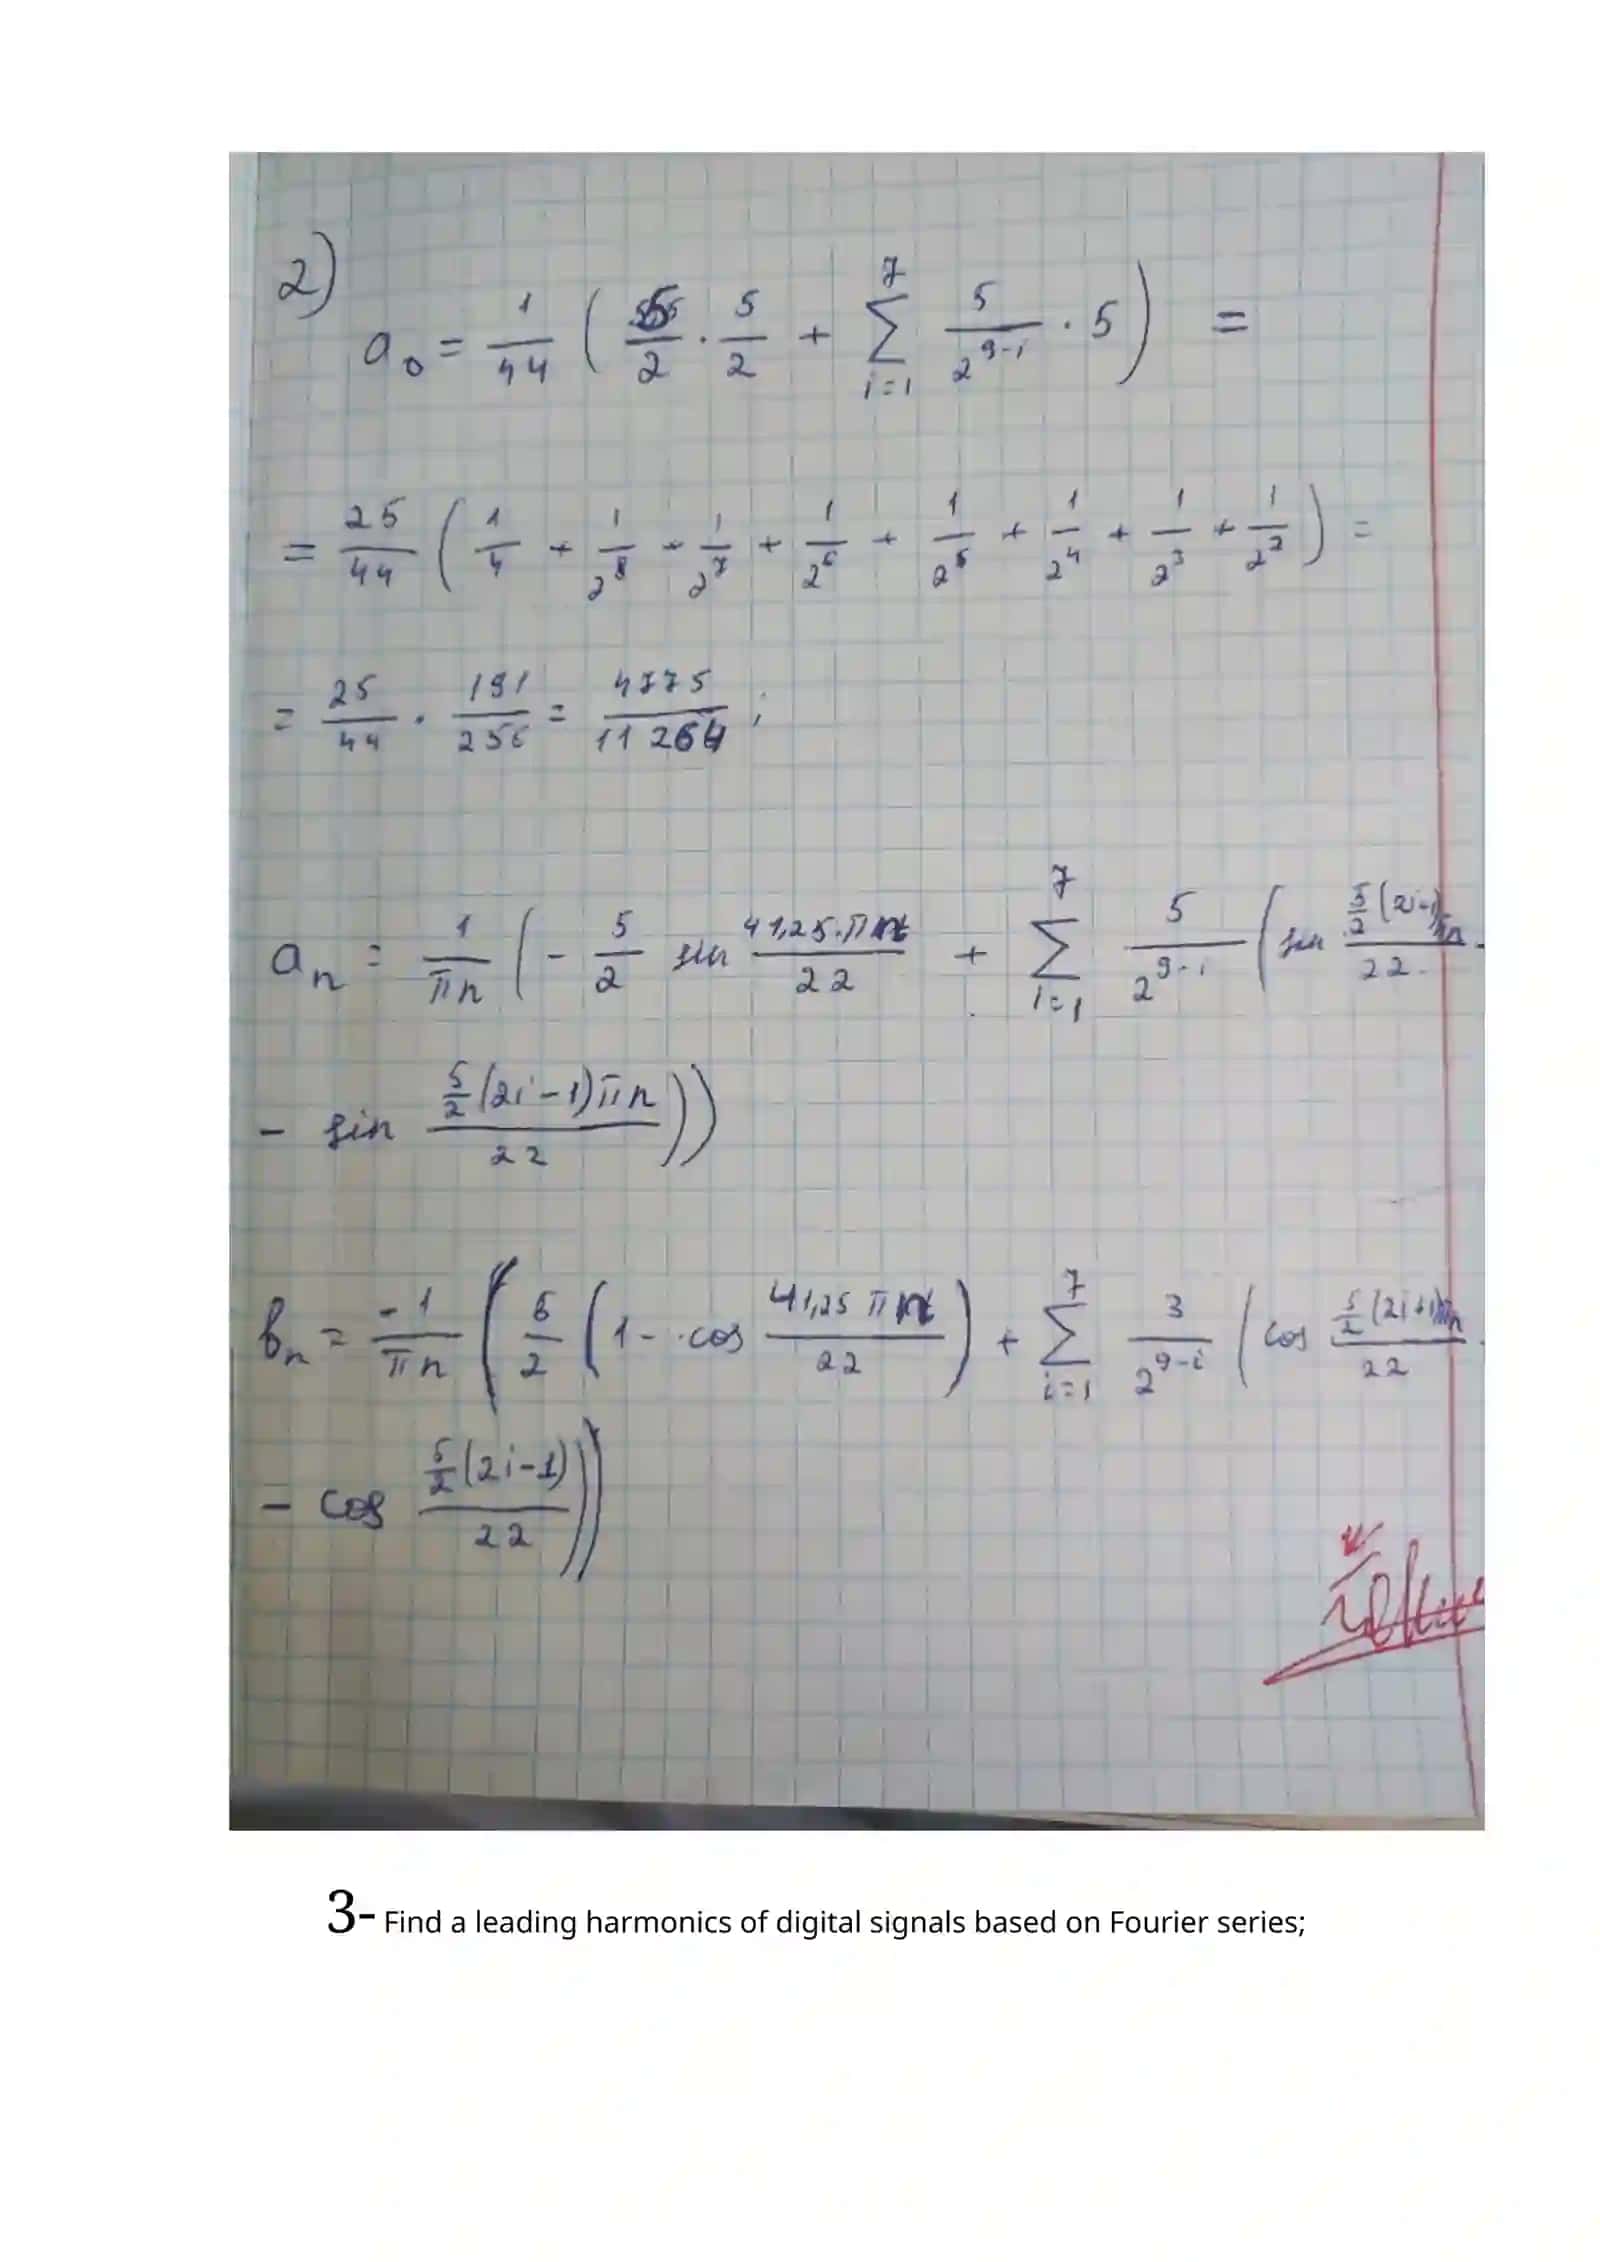 2)
a₀ = 1/44 ( 5/2 · 5/2 + Σ_{i=1}^{7} 5/2^{9-i} · 5 ) =
= 25/44 ( 1/4 + 1/2^8 + 1/2^7 + 1/2^6 + 1/2^5 + 1/2^4 + 1/2^3 + 1/2^2 ) =
= 25/44 · 191/256 = 4775/11264 ;
aₙ = 1/πn ( - 5/2 sin 41,25·πn/22 + Σ_{i=1}^{7} 5/2^{9-i} ( sin 5/2(2i-1)πn/22 -
- sin 5/2(2i-1)πn/22 ))
bₙ = -1/πn ( 5/2 ( 1 - cos 41,25πn/22 ) + Σ_{i=1}^{7} 3/2^{9-i} ( cos 5/2(2i+1)πn/22 -
- cos 5/2(2i-1)/22 ))
3- Find a leading harmonics of digital signals based on Fourier series;